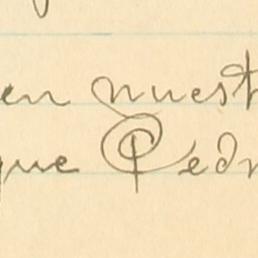 en nuest
que Pedr